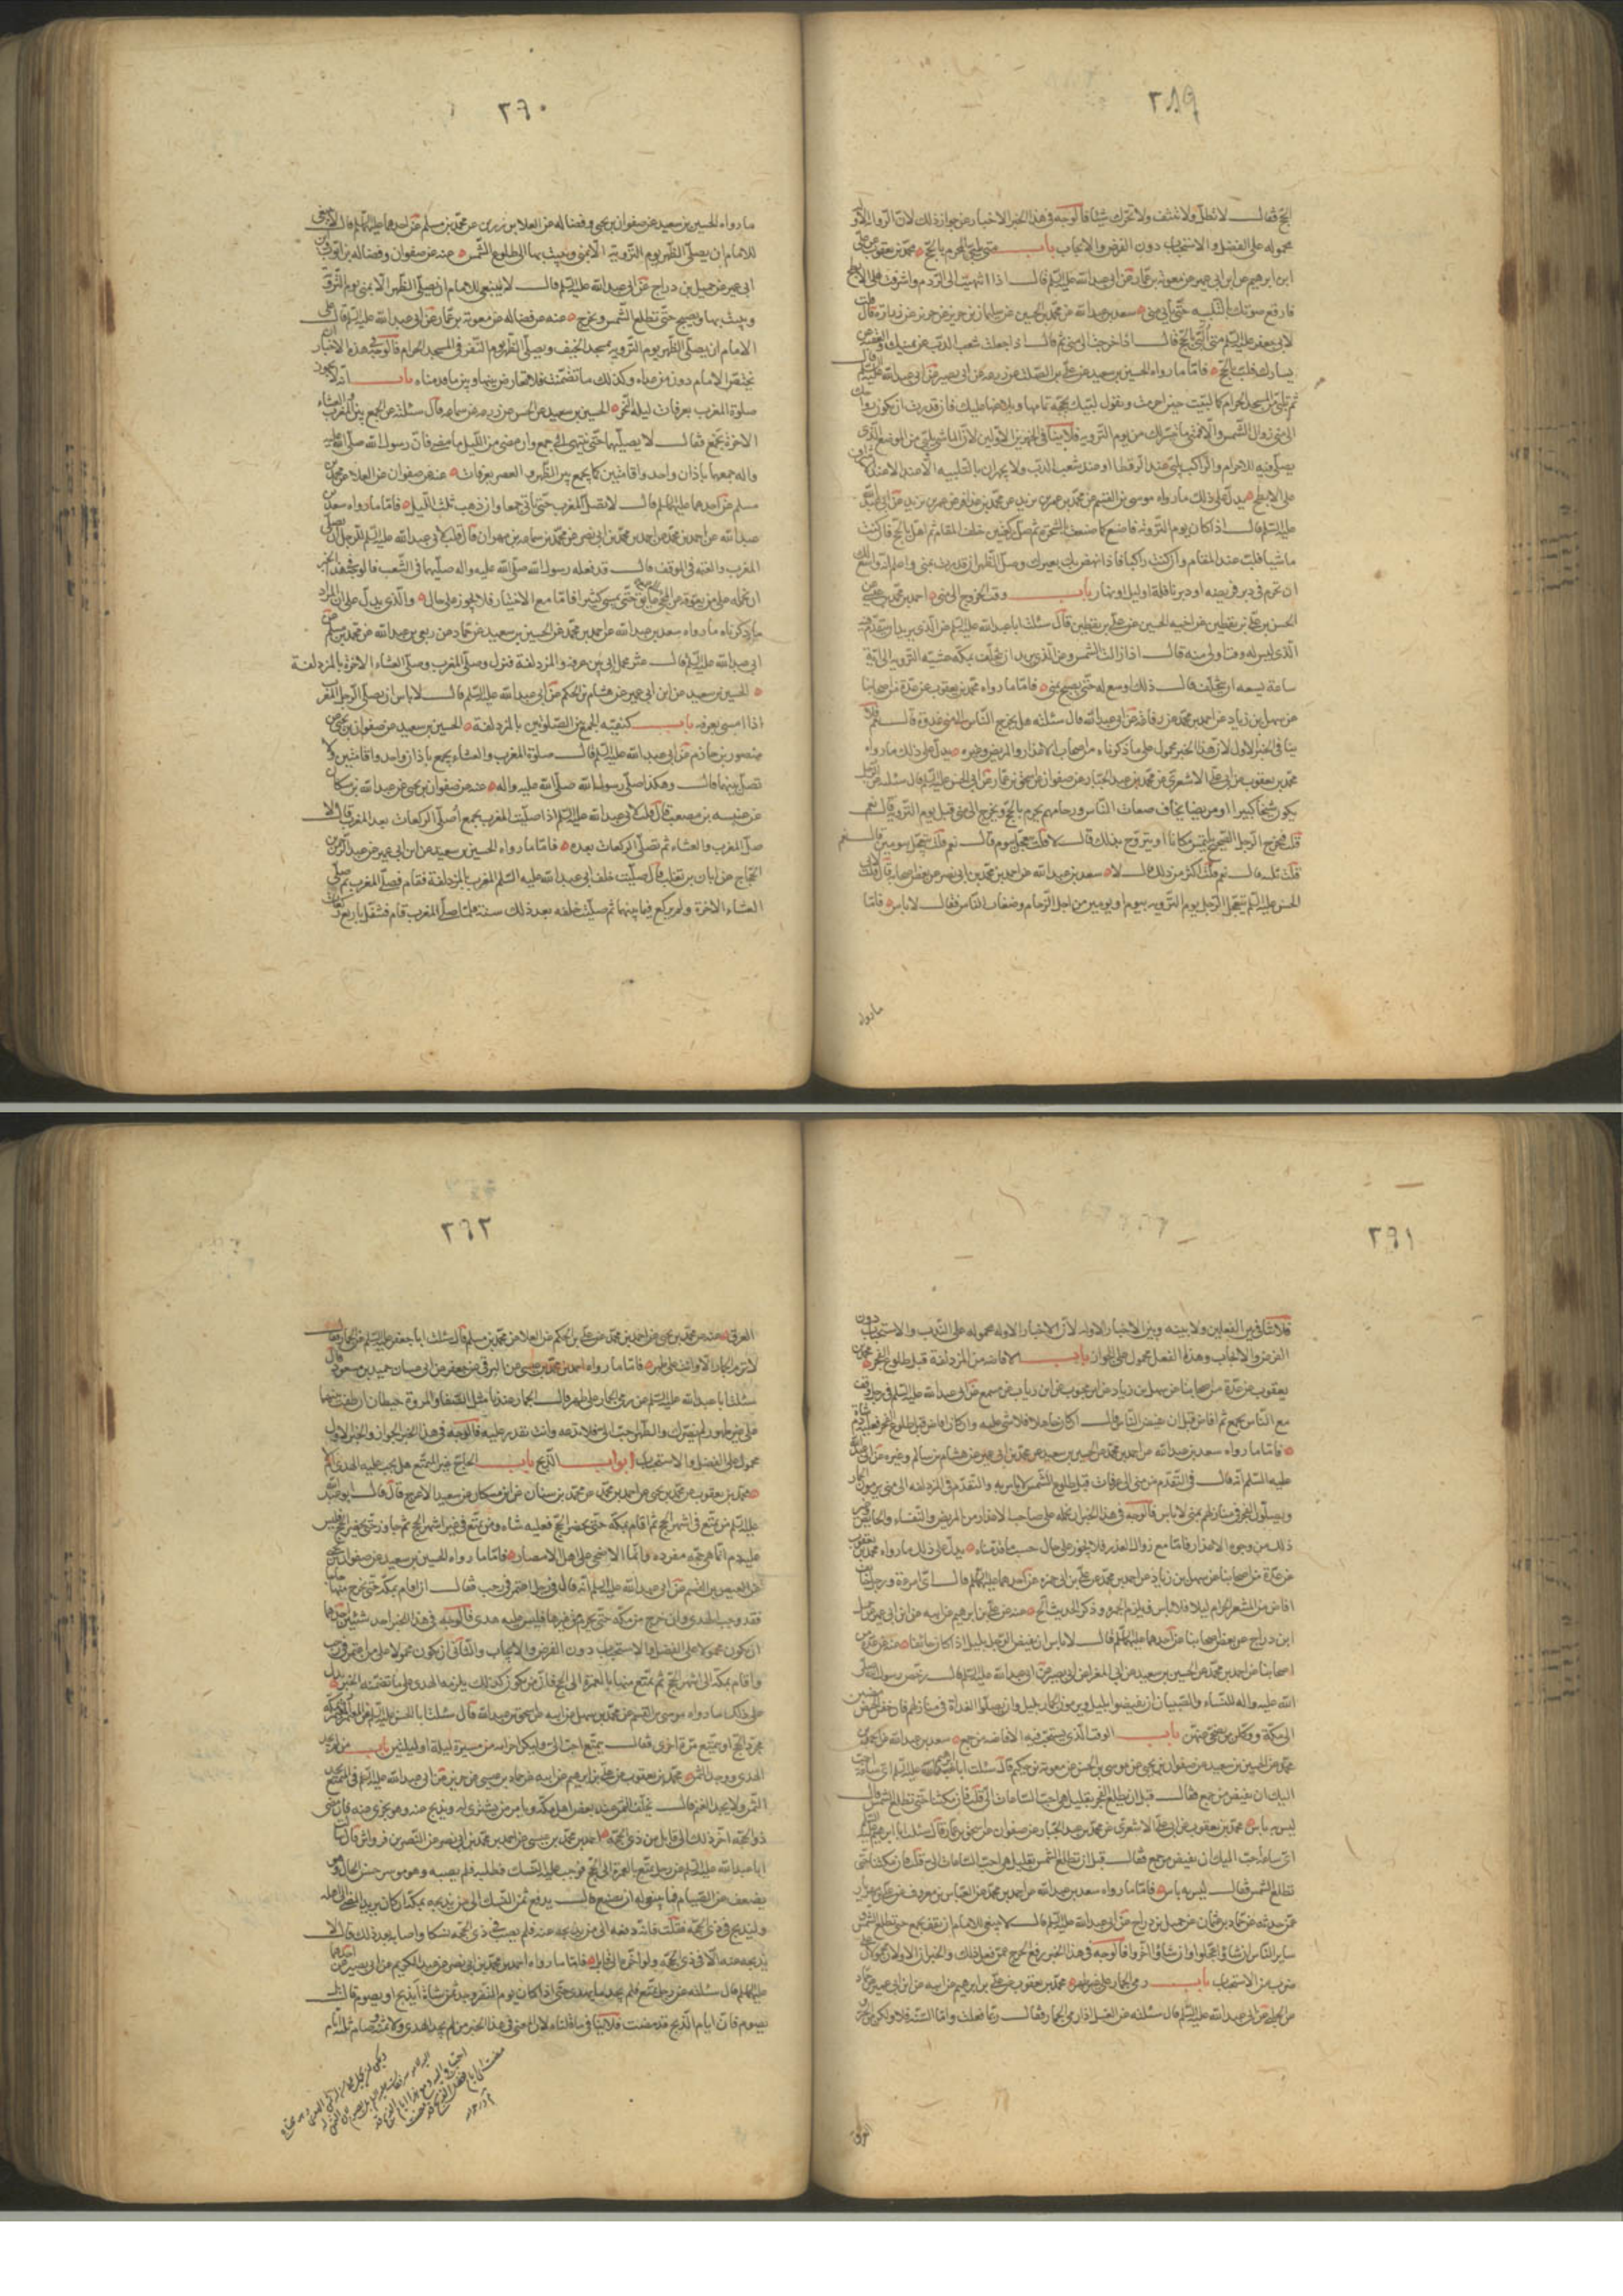 ٢٨٩
الحج فقال لا تطل ولا تمتد ولا تحرك شيئا فالوجه في هذا الخبر الاخبار عن جواز ذلك لان الروايات الاولة
محموله على الفضل والاستحباب دون الفرض والايجاب باب متى يلبي المحرم بالحج محمد بن يعقوب عن علي
ابن ابراهيم عن ابن ابي عمير عن معوية بن عمار عن ابي عبد الله عليه السلم قال اذا انتهيت الى الردم واشرفت على الابطح
فارفع صوتك بالتلبيه حتى تأتي منى سعد بن عبد الله عن محمد بن الحسين عن سليمان بن حريز عن حريز عن زرارة قال قلت
لابي جعفر عليه السلم متى ألبي بالحج قال اذا خرجت الى منى ثم قال اذا جعلت شعب الدب عن يمينك والعقبه عن
يسارك فلب بالحج فامّا ما رواه الحسين بن سعيد عن علي بن الصلت عن زرعه عن ابي بصير عن ابي عبد الله عليه السلم قال
ثم تلبي من المسجد الحرام كما لبيت حين احرمت وتقول لبيك بحجة تمامها وبلاغها عليك فان قدرت ان يكون رواحك
الى منى زوال الشمس والا فمتى ما تيسر لك من يوم التروية فلا ينافي الخبرين الاولين لان الماشي يلبي من الموضع الذي
يصلي فيه للاحرام والراكب يلبي عند الرقطا او عند شعب الدب ولا يجهران بالتلبيه الا عند الاشراف
على الابطح يدل على ذلك ما رواه موسى بن القسم عن محمد بن عمر بن يزيد عن محمد بن عذافر عن عمر بن يزيد عن ابي عبد الله
عليه السلم قال اذا كان يوم التروية فاصنع كما صنعت بالشجرة ثم صل ركعتين خلف المقام ثم اهل بالحج فان كنت
ماشيا فلب عند المقام وان كنت راكبا فاذا نهض بك بعيرك وصل الظهر ان قدرت بمنى واعلم انه واسع لك
ان تحرم في دبر فريضه او دبر نافلة او ليل او نهار باب وقت الخروج الى منى احمد بن محمد بن عيسى عن
الحسن بن علي بن يقطين عن اخيه الحسين عن علي بن يقطين قال سئلت ابا عبد الله عليه السلم عن الذي يريد ان يتقدم فيه
الذي ليس له وقت اول منه قال اذا زالت الشمس وعن الذي يريد ان يتخلف بمكه عشيه التروية الى اية
ساعة يسعه ان يتخلف قال ذلك اوسع له حتى يصبح بمنى فامّا ما رواه محمد بن يعقوب عن عدة من اصحابنا
عن سهل بن زياد عن احمد بن محمد عن رفاعة عن ابي عبد الله قال سئلته هل يخرج الناس الى منى غدوة قال نعم فلا
ينافي الخبر الاول لان هذا الخبر محمول على ما ذكرناه من اصحاب الاعذار والمريض وغيره يدل على ذلك ما رواه
محمد بن يعقوب عن ابي علي الاشعري عن محمد بن عبد الجبار عن صفوان عن اسحق بن عمار عن ابي الحسن عليه السلم قال سئلته عن الرجل
يكون شيخا كبيرا او مريضا يخاف ضغاط الناس وزحامهم يحرم بالحج ويخرج الى منى قبل يوم التروية قال نعم
قلت فيخرج الرجل الصحيح يلتمس مكانا او يتروح بذلك قال لا قلت يتعجل بيوم قال نعم قلت يتعجل بيومين قال نعم
قلت ثلثه قال نعم قلت اكثر من ذلك قال لا سعد بن عبد الله عن احمد بن محمد بن ابي نصر عن بعض اصحابه قال قلت لابي
الحسن عليه السلم يتعجل الرجل يوم التروية بيوم او يومين من اجل الزحام وضغاط الناس فقال لا باس فامّا
ما رواه
٢٩٠
ما رواه الحسين بن سعيد عن صفوان بن يحيى وفضاله عن العلا بن رزين عن محمد بن مسلم عن احدهما عليهما السلم قال لا ينبغي
للامام ان يصلي الظهر يوم التروية الا بمنى ويبيت بها الى طلوع الشمس عنه عن صفوان وفضاله بن ايوب وابن
ابي عمير عن جميل بن دراج عن ابي عبد الله عليه السلم قال لا ينبغي للامام ان يصلي الظهر الا بمنى يوم التروية
ويبيت بها ويصبح حتى تطلع الشمس ويخرج عنه عن فضاله عن معوية بن عمار عن ابي عبد الله عليه السلم قال على
الامام ان يصلي الظهر يوم التروية بمسجد الخيف ويصلي الظهر يوم النفر في المسجد الحرام فالوجه في هذه الاخبار ان
تختص الامام دون من عداه وكذلك ما تضمنت فلا تعارض بينها وبين ما قدمناه باب انه لا يجوز
صلوة المغرب بعرفات ليلة النحر الحسين بن سعيد عن الحسن عن زرعه عن سماعه قال سئلته عن الجمع بين المغرب والعشاء
الاخرة بجمع فقال لا يصليهما حتى ينتهي الى جمع وان مضى من الليل ما مضى فان رسول الله صلى الله عليه
واله جمعهما باذان واحد واقامتين كما يجمع بين الظهر والعصر بعرفات عنه عن صفوان عن العلا عن محمد بن
مسلم عن احدهما عليهما السلم قال لا تصل المغرب حتى تأتي جمعا وان ذهب ثلث الليل فامّا ما رواه سعد بن
عبد الله عن احمد بن محمد عن احمد بن محمد بن ابي نصر عن محمد بن سماعه بن مهران قال قلت لابي عبد الله عليه السلم للرجل ان يصلي
المغرب والعتمه في الموقف قال قد فعله رسول الله صلى الله عليه واله صليهما في الشعب فالوجه في هذا الخبر
ان نحمله على من يعوقه عن المجيء عايق حتى يمسي كثيرا فامّا مع الاختيار فلا يجوز على حال والذي يدل على ان المراد
ما ذكرناه ما رواه سعد بن عبد الله عن احمد بن محمد عن الحسين بن سعيد عن حماد عن ربعي بن عبد الله عن محمد بن مسلم عن
ابي عبد الله عليه السلم قال عثر محمل ابي بين عرفه والمزدلفة فنزل وصلى المغرب وصلى العشاء الاخرة بالمزدلفة
الحسين بن سعيد عن ابن ابي عمير عن هشام بن الحكم عن ابي عبد الله عليه السلم قال لا باس ان يصلي الرجل المغرب
اذا امسى بعرفه باب كيفيه الجمع بين الصلوتين بالمزدلفة الحسين بن سعيد عن صفوان بن يحيى عن
منصور بن حازم عن ابي عبد الله عليه السلم قال صلوة المغرب والعشاء بجمع باذان واحد واقامتين لا
تصل بينهما قال وهكذا صلى رسول الله صلى الله عليه واله عنه عن صفوان بن يحيى عن عبد الله بن مسكان
عن عنبسه بن مصعب قال قلت لابي عبد الله عليه السلم اذا صليت المغرب بجمع أصلي الركعات بعد المغرب قال لا
صل المغرب والعشاء ثم تصلي الركعات بعده فامّا ما رواه الحسين بن سعيد عن ابن ابي عمير عن عبد الرحمن بن
الحجاج عن ابان بن تغلب قال صليت خلف ابي عبد الله عليه السلم المغرب بالمزدلفة فقام فصلى المغرب ثم صلى
العشاء الاخرة ولم يركع فيما بينهما ثم صليت خلفه بعد ذلك سنة فلما صلى المغرب قام فتنفل باربع ركعات
٢٩١
فلا تنافي بين الفعلين ولا بينه وبين الاخبار الاولة لان الاخبار الاولة محموله على الندب والاستحباب دون
الفرض والايجاب وهذا الفعل محمول على الجواز باب الافاضه من المزدلفة قبل طلوع الفجر محمد بن
يعقوب عن عدة من اصحابنا عن سهل بن زياد عن ابن محبوب عن ابن رباب عن مسمع عن ابي عبد الله عليه السلم في رجل وقف
مع الناس بجمع ثم افاض قبل ان يفيض الناس قال ان كان جاهلا فلا شيء عليه وان كان افاض قبل طلوع الفجر فعليه دم شاة
فامّا ما رواه سعد بن عبد الله عن احمد بن محمد عن الحسين بن سعيد عن محمد بن ابي عمير عن هشام بن سالم وغيره عن ابي عبد الله
عليه السلم انه قال في التقدم من منى الى عرفات قبل طلوع الشمس لا باس به والتقدم في المزدلفة الى منى يرمون الجمار
ويصلون الفجر في منازلهم بمنى لا باس فالوجه في هذا الخبر ان نحمله على صاحب الاعذار من المريض والنساء والخائف وغير
ذلك من وجوه الاعذار فامّا مع زوال العذر فلا يجوز على حال حسب ما قدمناه يدل على ذلك ما رواه محمد بن يعقوب
عن عدة من اصحابنا عن سهل بن زياد عن احمد بن محمد عن علي بن ابي حمزه عن احدهما عليهما السلم قال اي امرءة ورجل خائف
افاض من المشعر الحرام ليلا فلا باس فليرم الجمرة وذكر الحديث الخ عنه عن علي بن ابراهيم عن ابيه عن ابن ابي عمير عن جميل
ابن دراج عن بعض اصحابنا عن احدهما عليهما السلم قال لا باس ان يفيض الرجل بليل اذا كان خائفا عنه عن عدة من
اصحابنا عن احمد بن محمد عن الحسين بن سعيد عن ابي المغرا عن ابي بصير عن ابي عبد الله عليه السلم قال رخص رسول الله صلى
الله عليه واله للنساء والصبيان ان يفيضوا بليل ويرموا الجمار بليل وان يصلوا الغداة في منازلهم فان خفن الحيض مضين
الى مكة ووكلن من يضحي عنهن باب الوقت الذي يستحب فيه الافاضه من جمع سعد بن عبد الله عن احمد بن
محمد عن الحسين بن سعيد عن صفوان بن يحيى عن موسى بن الحسن عن معوية بن حكيم قال سئلت ابا ابراهيم عليه السلم اي ساعة احب
اليك ان نفيض من جمع فقال قبل ان تطلع الشمس بقليل هي احب الساعات الي قلت فان مكثنا حتى تطلع الشمس قال
ليس به باس محمد بن يعقوب عن ابي علي الاشعري عن محمد بن عبد الجبار عن صفوان عن اسحق بن عمار قال سئلت ابا ابراهيم عليه السلم
اي ساعة احب اليك ان نفيض من جمع فقال قبل ان تطلع الشمس بقليل هي احب الساعات الي قلت فان مكثنا حتى
تطلع الشمس فقال ليس به باس فامّا ما رواه سعد بن عبد الله عن احمد بن محمد عن العباس بن معروف عن علي بن مهزيار
عمن حدثه عن حماد بن عثمان عن جميل بن دراج عن ابي عبد الله عليه السلم قال لا ينبغي للامام ان يقف بجمع حتى تطلع الشمس
ساير الناس ان شاؤا عجلوا وان شاؤا اخروا فالوجه في هذا الخبر رفع الحرج عمن فعل ذلك والخبران الاولان محمولان على
ضرب من الاستحباب باب رمي الجمار على غير طهر محمد بن يعقوب عن علي بن ابراهيم عن ابيه عن ابن ابي عمير عن حماد
عن الحلبي عن ابي عبد الله عليه السلم قال سئلته عن الغسل اذا رمى الجمار فقال ربما فعلت وامّا السنة فلا ولكن من الحر و
العرق
٢٩٢
العرق عنه عن محمد بن يحيى عن احمد بن محمد عن علي بن الحكم عن العلا عن محمد بن مسلم قال سئلت ابا جعفر عليه السلم عن الجمار فقال
لا ترم الجمار الا وانت على طهر فامّا ما رواه احمد بن محمد بن عيسى عن البرقي عن جعفر عن ابي غسان حميد بن مسعود قال
سئلت ابا عبد الله عليه السلم عن رمي الجمار على غير طهر قال الجمار عندنا مثل الصفا والمروة حيطان ان طفت بينهما
على غير طهور لم يضرك والطهر احب الي فلا تدعه وانت تقدر عليه فالوجه في هذا الخبر الجواز والخبر الاول
محمول على الفضل والاستحباب ابواب الذبح باب الحاج غير المتمتع هل يجب عليه الهدي ام لا
محمد بن يعقوب عن محمد بن يحيى عن احمد بن محمد عن محمد بن سنان عن ابن مسكان عن سعيد الاعرج قال قال ابو عبد الله
عليه السلم من تمتع في اشهر الحج ثم اقام بمكه حتى يحضر الحج فعليه شاه ومن تمتع في غير اشهر الحج ثم جاور حتى يحضر الحج فليس
عليه دم انما هي حجه مفرده وانما الاضحى على اهل الامصار فامّا ما رواه الحسين بن سعيد عن صفوان بن يحيى
عن العيص بن القسم عن ابي عبد الله عليه السلم انه قال في رجل اعتمر في رجب فقال ان اقام بمكه حتى يخرج منها حاجا
فقد وجب الهدي وان خرج من مكه حتى يحرم من غيرها فليس عليه هدي فالوجه في هذا الخبر احد شيئين احدهما
ان يكون محمولا على الفضل والاستحباب دون الفرض والايجاب والثاني ان يكون محمولا على من اعتمر في رجب
واقام بمكه الى اشهر الحج ثم تمتع منها بالعمرة الى الحج فان من يكون كذلك يلزمه الهدي على ما تضمنه الخبر يدل
على ذلك ما رواه موسى بن القسم عن محمد بن سهل عن ابيه عن اسحق بن عبد الله قال سئلت ابا الحسن عليه السلم عن المعتمر بمكه
يجرد الحج او يتمتع مرة اخرى فقال يتمتع احب الي وليكن احرامه من مسيرة ليلة او ليلتين باب من لم يجد
الهدي ووجد الثمن محمد بن يعقوب عن علي بن ابراهيم عن ابيه عن حماد بن عيسى عن حريز عن ابي عبد الله عليه السلم في متمتع يجد
الثمن ولا يجد الغنم قال يخلف الثمن عند بعض اهل مكه ويامر من يشتري له ويذبح عنه وهو يجزي عنه فان مضى
ذو الحجه اخر ذلك الى قابل من ذي الحجه احمد بن محمد بن عيسى عن احمد بن محمد بن ابي نصر عن النضر بن قرواش قال سئلت
ابا عبد الله عليه السلم عن رجل تمتع بالعمرة الى الحج فوجب عليه النسك فطلبه فلم يصبه وهو موسر حسن الحال وهو
يضعف عن الصيام فما ينبغي له ان يصنع قال يدفع ثمن النسك الى من يذبحه بمكه ان كان يريد المضي الى اهله
وليذبح في ذي الحجه فقلت فانه دفعه الى من يذبحه عنه فلم يصب في ذي الحجه نسكا واصابه بعد ذلك قال لا
يذبح عنه الا في ذي الحجه ولو اخره الى قابل فامّا ما رواه احمد بن محمد بن ابي نصر عن عبد الكريم عن ابي بصير عن احدهما
عليهما السلم قال سئلته عن رجل تمتع فلم يجد ما يهدي حتى اذا كان يوم النفر وجد ثمن شاة أيذبح او يصوم قال بل
يصوم فان ايام الذبح قد مضت فلا ينافي ما قلناه لان المعنى في هذا الخبر من لم يجد الهدي ولا ثمنه وصام ثلثة ايام